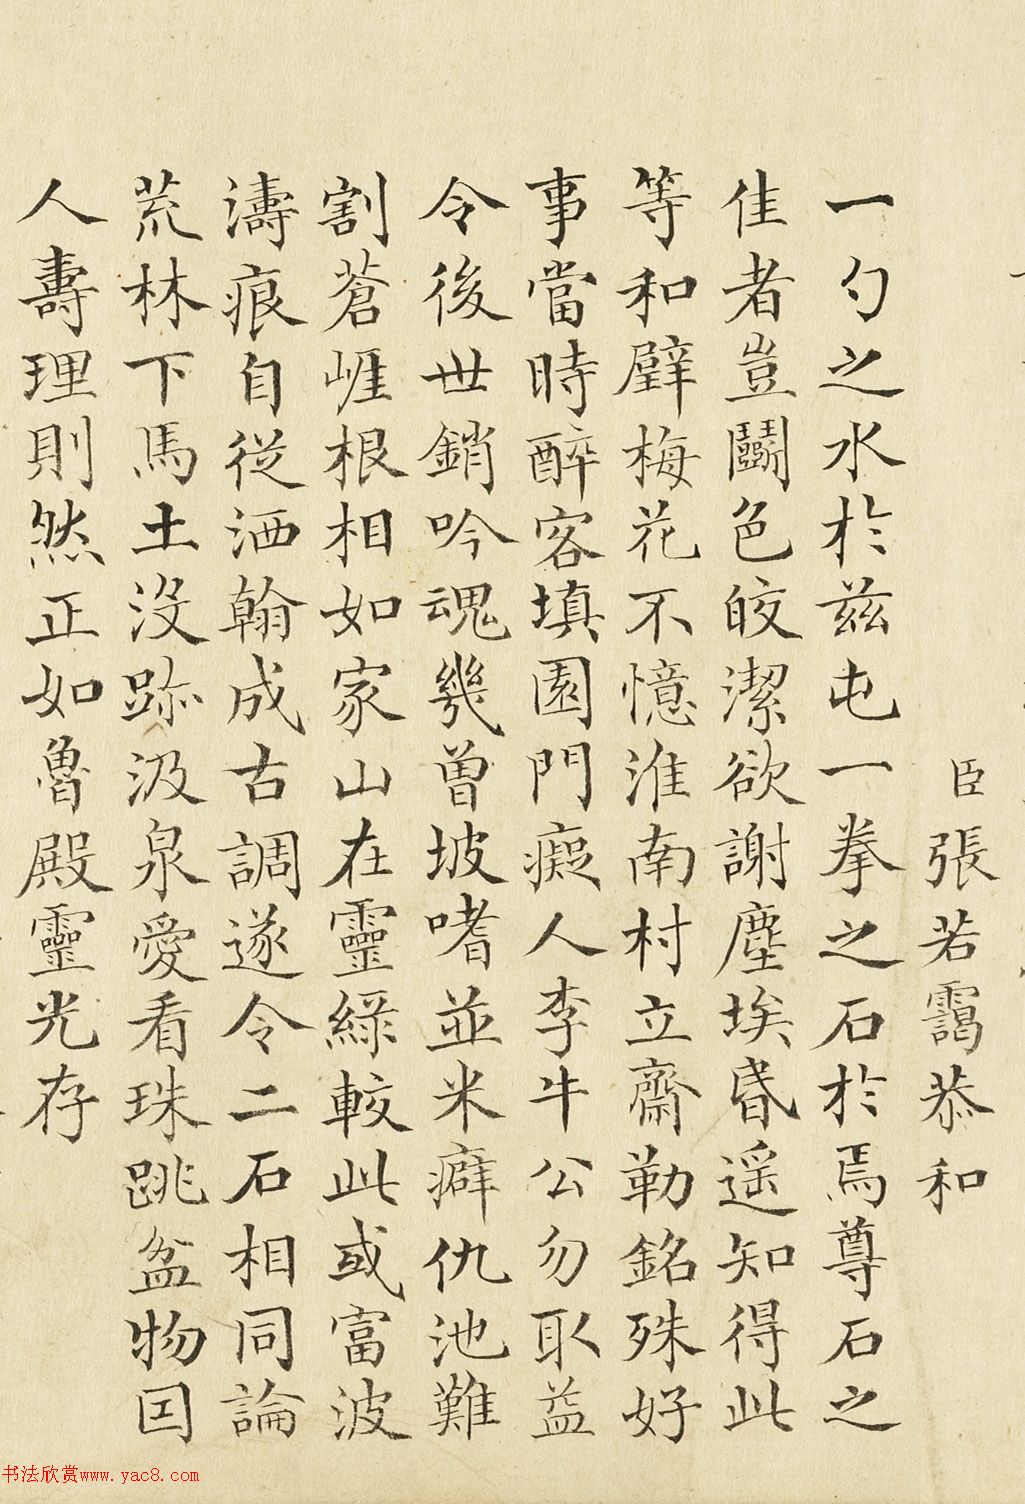 臣張若靄恭和
一勺之水於茲屯一拳之石於焉尊石之
佳者豈鬭色皎潔欲謝塵埃昏遥知得此
等和璧梅花不憶淮南村立齋勒銘殊好
事當時醉客填園門癡人李牛公勿取益
令後世銷吟魂幾曾坡嗜並米癖仇池難
割蒼崕根相如家山在靈綠較此或富波
濤痕自從洒翰成古調遂令二石相同論
荒林下馬土沒跡汲泉愛看珠跳盆物因
人壽理則然正如魯殿靈光存
书法欣赏www.yac8.com